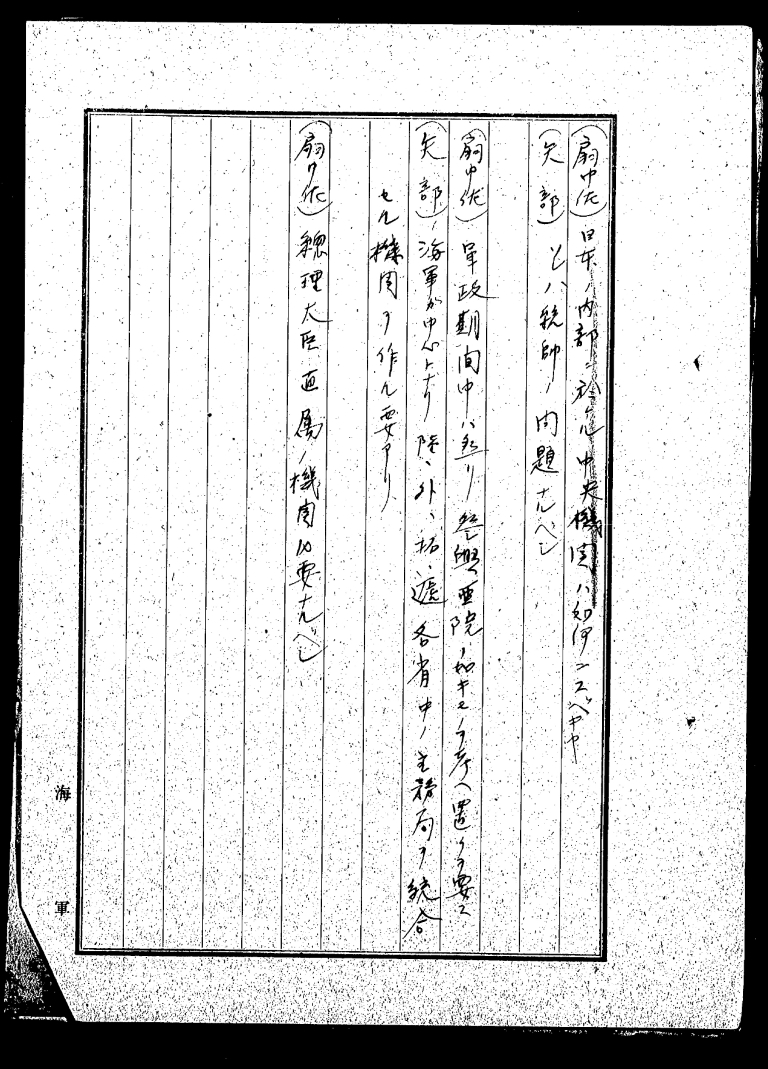 (扇中佐) 日本ノ内部ニ於ケル中央機関ハ如何ニスベキヤ
(矢部) ソハ統帥ノ問題ナルベシ
(扇中佐) 軍政期間中ハ然リ 興亜院ノ如キモノヲ考ヘ置クヲ要ス
(矢部) 海軍ガ中心トナリ 陸、外、拓、逓 各省中ノ主務局ヲ統合
セル機関ヲ作ル要アリ
(扇中佐) 総理大臣直属ノ機関必要ナルベシ
海軍